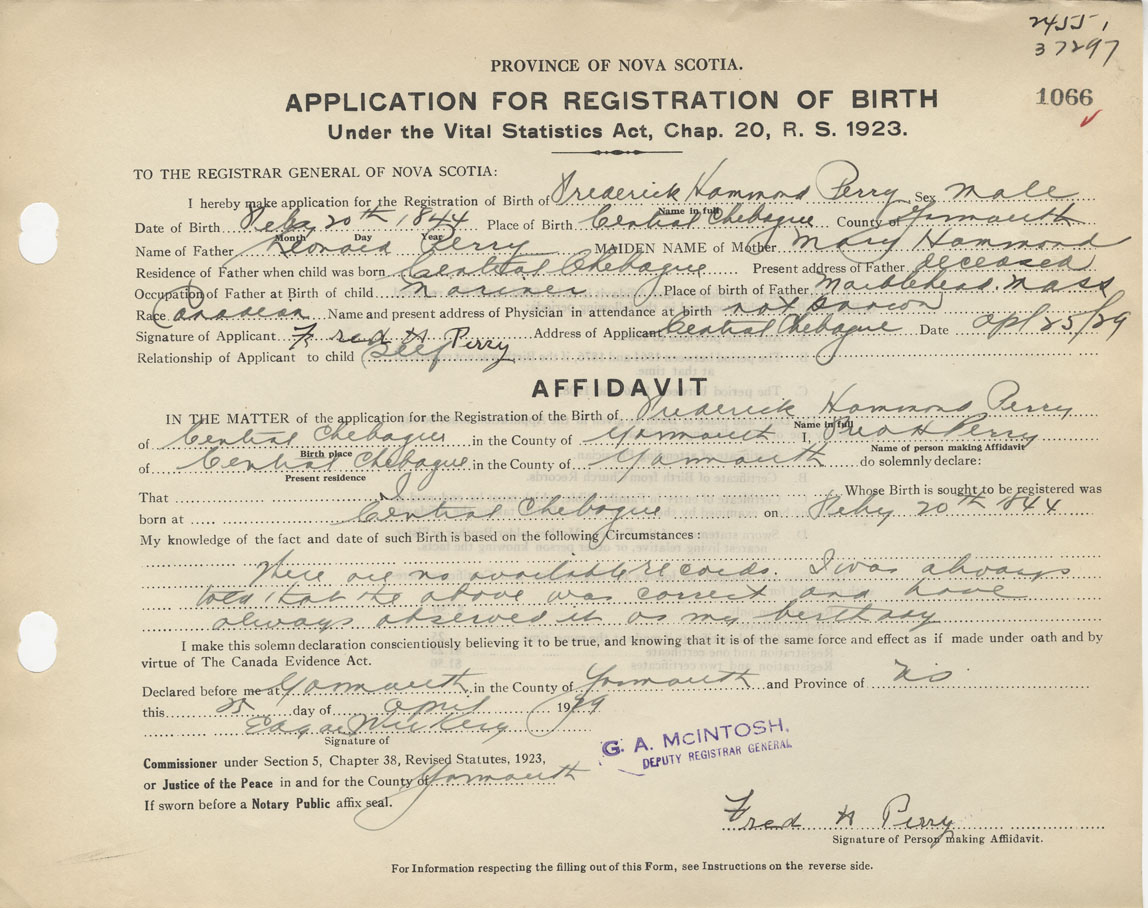 2455 1
37297
PROVINCE OF NOVA SCOTIA.
1066
APPLICATION FOR REGISTRATION OF BIRTH
Under the Vital Statistics Act, Chap. 20, R. S. 1923.
TO THE REGISTRAR GENERAL OF NOVA SCOTIA:
I hereby make application for the Registration of Birth of Frederick Hammond Perry Sex Male
Name in full
Date of Birth Feby 20th 1844 Place of Birth Central Chebogue County of Yarmouth
Month Day Year
Name of Father Leonard Perry MAIDEN NAME of Mother Mary Hammond
Residence of Father when child was born Central Chebogue Present address of Father deceased
Occupation of Father at Birth of child Mariner Place of birth of Father Marblehead Mass
Race Canadian Name and present address of Physician in attendance at birth not known
Signature of Applicant Fred H Perry Address of Applicant Central Chebogue Date Apl 25/29
Relationship of Applicant to child Self
AFFIDAVIT
IN THE MATTER of the application for the Registration of the Birth of Frederick Hammond Perry
Name in full
of Central Chebogue in the County of Yarmouth I, Fred H Perry
Birth place Name of person making Affidavit
of Central Chebogue in the County of Yarmouth do solemnly declare:
Present residence
That I Whose Birth is sought to be registered was
born at Central Chebogue on Feby 20th 1844
My knowledge of the fact and date of such Birth is based on the following Circumstances:
There are no available records. I was always
told that the above was correct and have
always observed it as my birthday
I make this solemn declaration conscientiously believing it to be true, and knowing that it is of the same force and effect as if made under oath and by
virtue of The Canada Evidence Act.
Declared before me at Yarmouth in the County of Yarmouth and Province of N.S.
this 25 day of April 1929
Edgar
Signature of
Commissioner under Section 5, Chapter 38, Revised Statutes, 1923,
or Justice of the Peace in and for the County of Yarmouth
If sworn before a Notary Public affix seal.
G. A. McINTOSH.
DEPUTY REGISTRAR GENERAL
Fred H Perry
Signature of Person making Affiidavit.
For Information respecting the filling out of this Form, see Instructions on the reverse side.